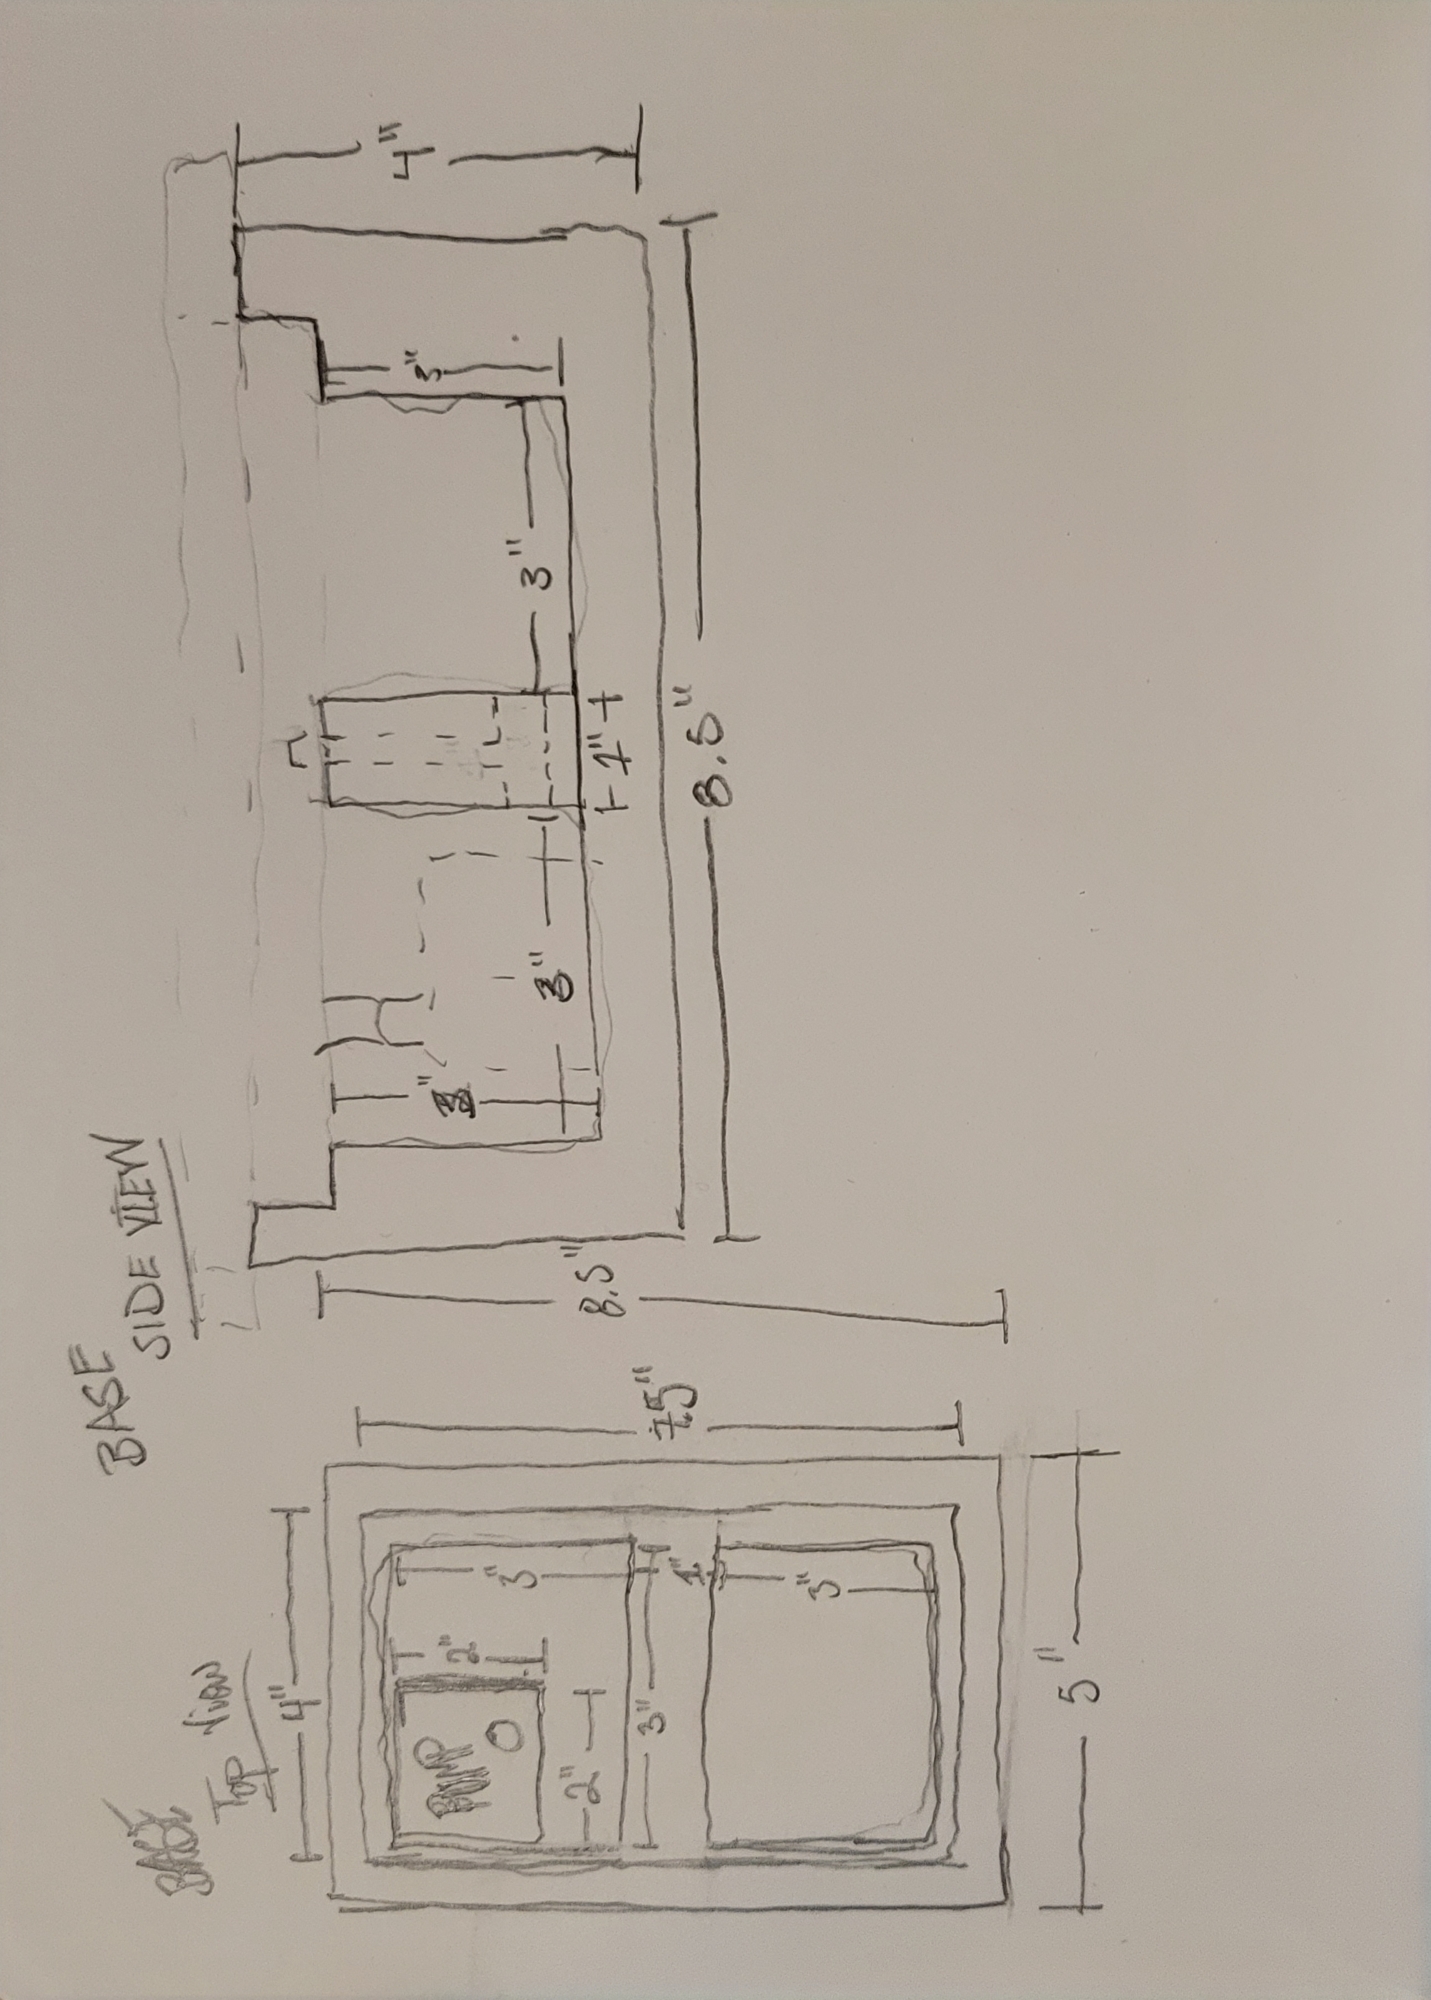 BASE
Top View
4"
PUMP
2"
3"
2"
3"
1"
3"
7.5"
5"
BASE
SIDE VIEW
8.5"
3"
3"
1"
3"
3"
4"
8.5"